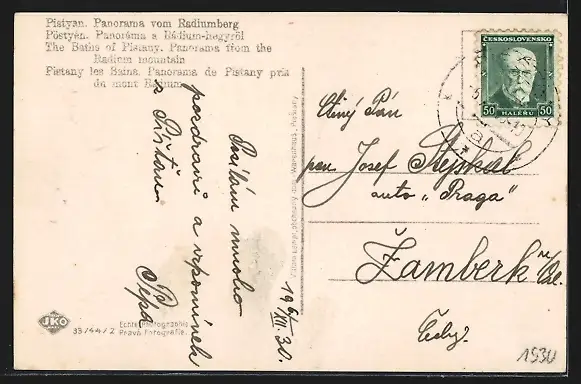 Pistyan. Panorama vom Radiumberg
Pöstyén. Panoráma a Rádium-hegyről
The Baths of Pistany. Panorama from the
Radium mountain
Pistany les Bains. Panorama de Pistany pris
de mont Radium
ČESKOSLOVENSKO
50 50
HALÉŘŮ
Ctěný Pán
pan Josef Stejskal
auto „Praga“
Žamberk n/Orl.
Čechy.
Posílám mnoho
pozdravů a vzpomínek
z Píšťan
Pepa
19 6/XII. 30.
JKO
33/44/2
Echte Photographie
Pravá Fotografie.
1930